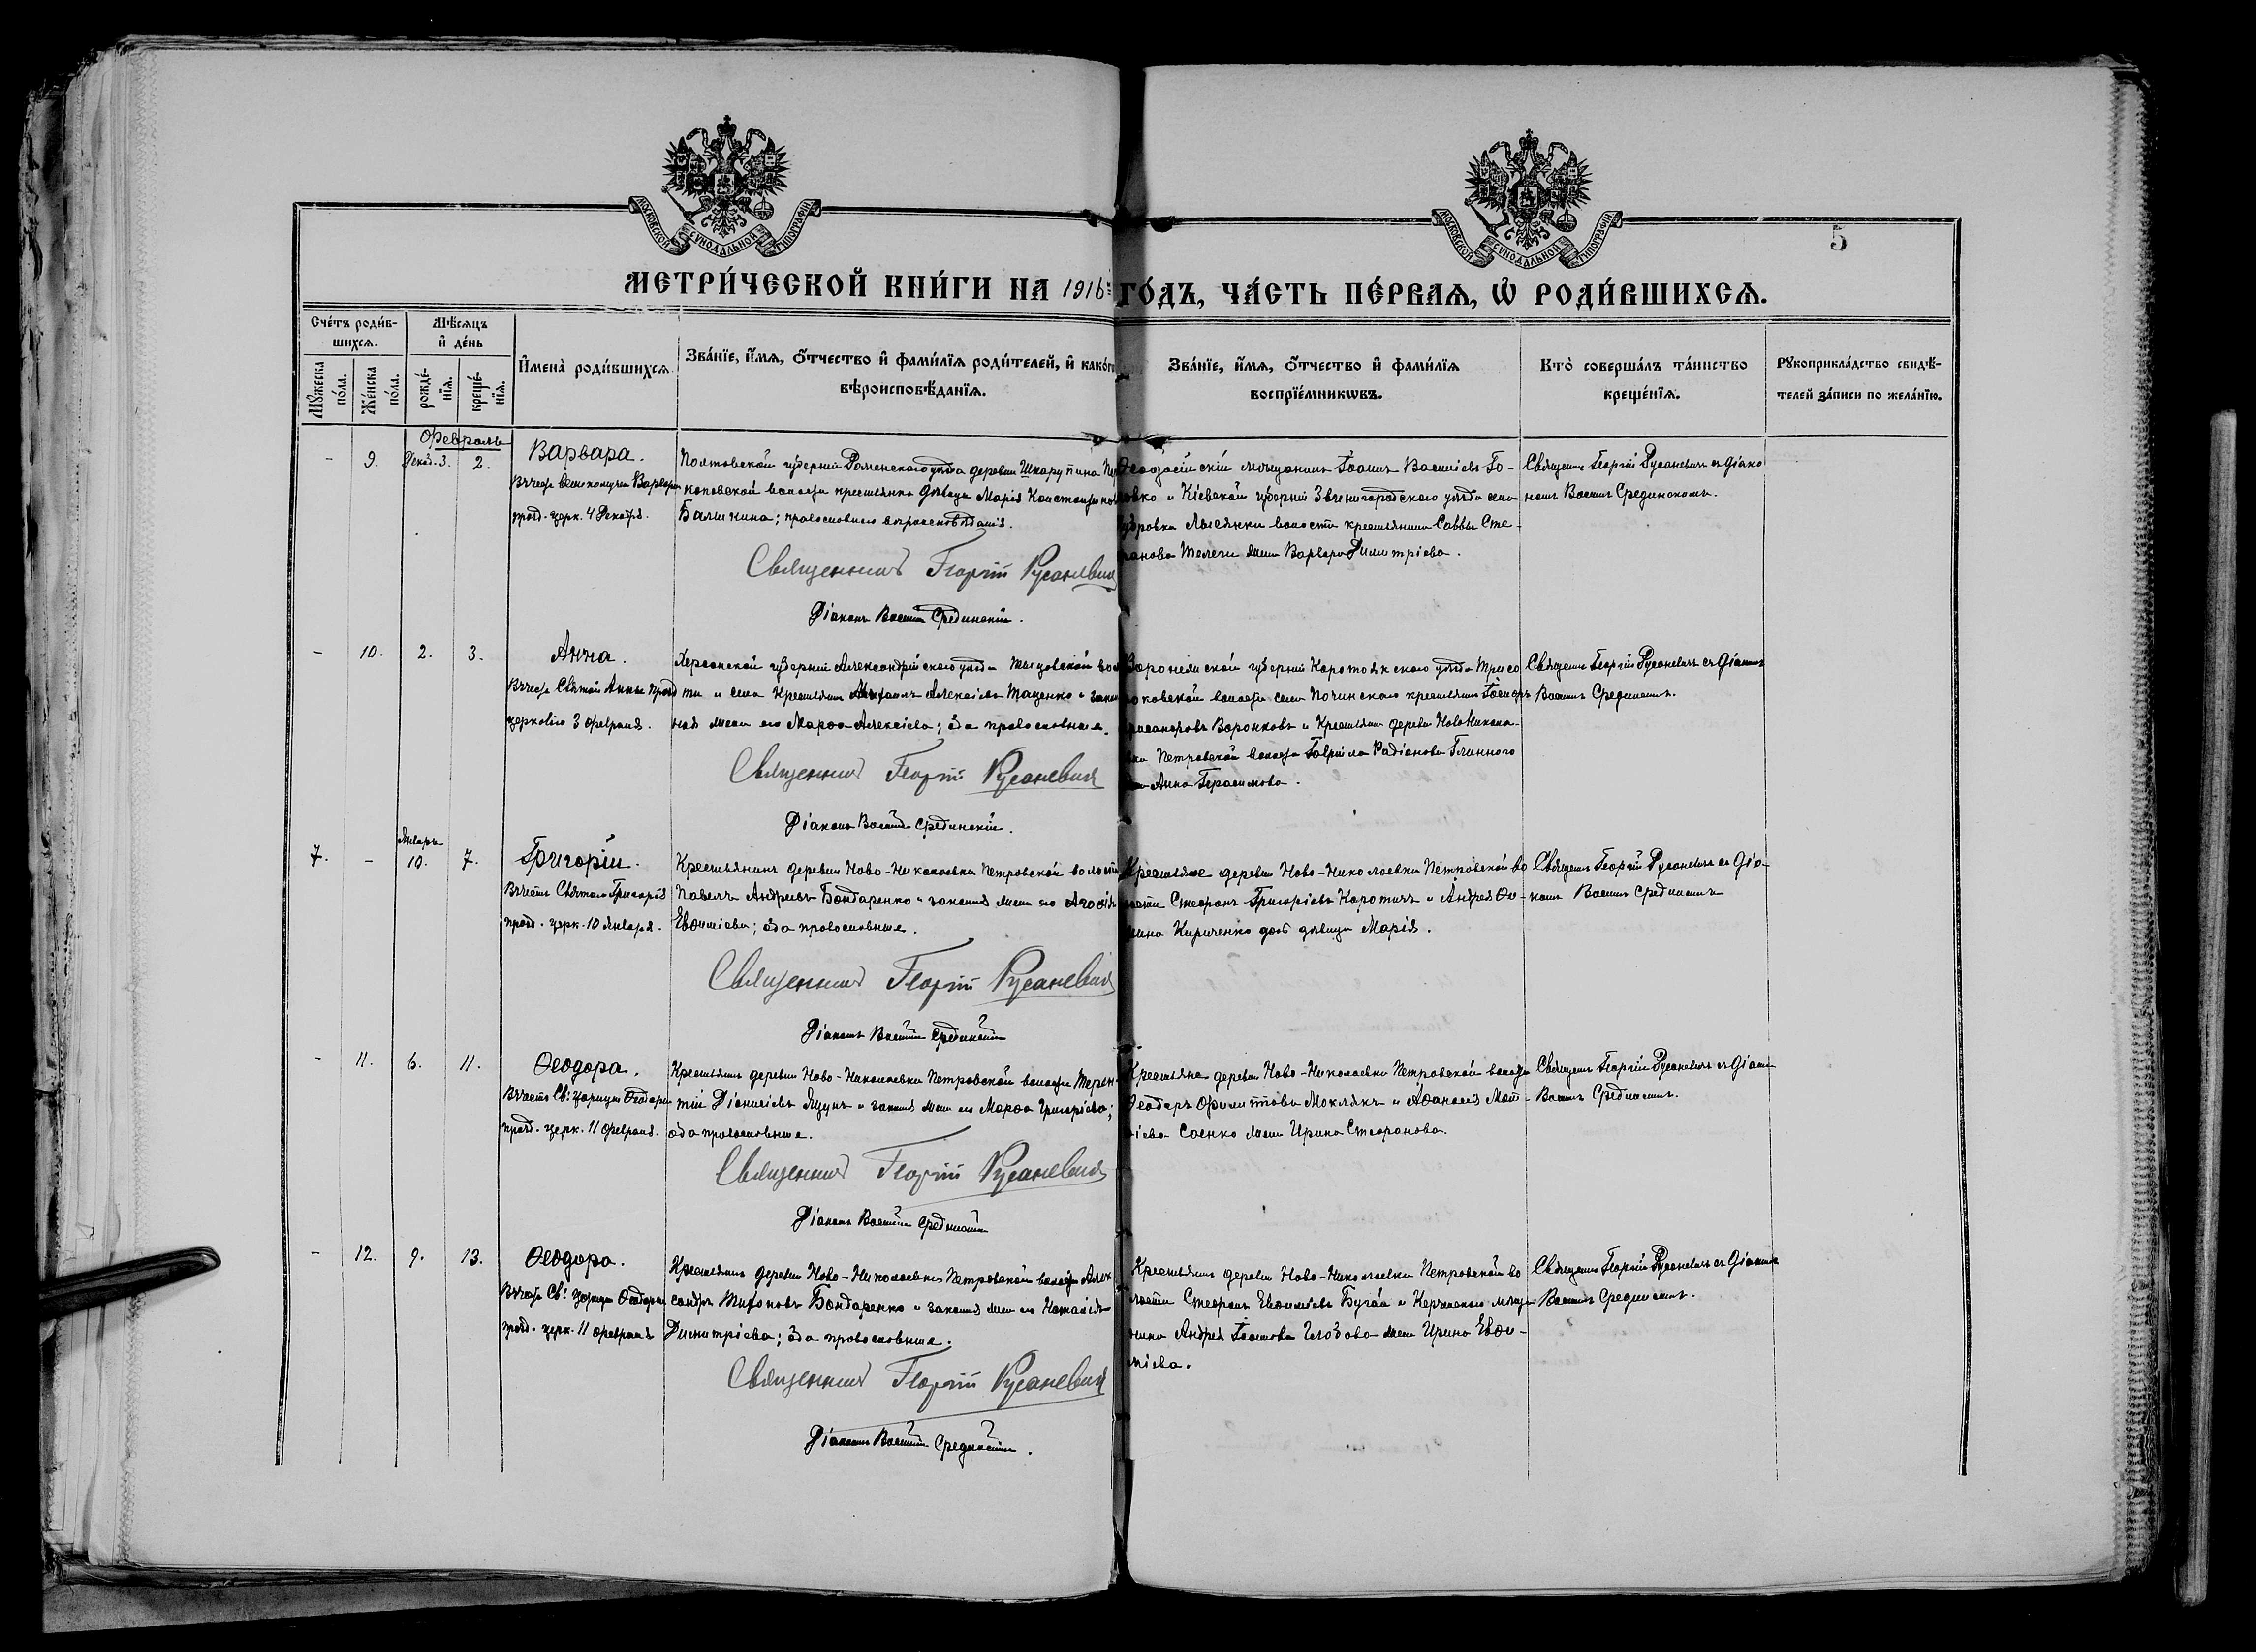 МОСКОВСКОЙ СѴНОДАЛЬНОЙ ТИПОГРАФІИ
МОСКОВСКОЙ СѴНОДАЛЬНОЙ ТИПОГРАФІИ
5
МЕТРИ́ЧЕСКОЙ КНИ́ГИ НА 1916 ГО́ДЪ, ЧА́СТЬ ПЕ́РВАЯ, Ѡ РОДИ́ВШИХСЯ.
Сче́тъ роди́в-
шихся.
Мꙋ́жеска по́ла.
Же́нска по́ла.
Мѣ́сяцъ
и де́нь
рожде́-
нїя.
креще́-
нїя.
Имена̀ роди́вшихся.
Зва́нїе, и́мя, о́тчество и фами́лїя роди́телей, и како́гѡ
вѣроисповѣ́данїя.
Зва́нїе, и́мя, о́тчество и фами́лїя
воспрїе́мникѡвъ.
Кто̀ соверша́лъ та́инство
креще́нїя.
Рꙋкоприкла́дство свидѣ́-
телей за́писи по жела́нїю.
Февраль
- 9. Декаб. 3. 2.
Варвара.
Въ честь великомучен. Варвары
празд. церк. 4 Декабря.
Полтавской губерніи Роменскаго уѣзда деревни
волости крестьянка дѣвица Марія Константинова
православнаго вѣроисповѣданія.
Священникъ Георгій Русаневичъ
Діаконъ Василій Срединскій.
Ѳеодосійскій мѣщанинъ Іоаннъ Васильевъ Го-
вко и Кіевской губерніи Звенигородскаго уѣзда села
волости крестьянина Саввы Сте-
фанова Телеги жена Варвара Димитріева.
Священникъ Георгій Русаневичъ съ діако
номъ Василіемъ Срединскимъ.
- 10. 2. 3.
Анна.
Въ честь Святой Анны празд
церковію 3 Февраля.
Херсонской губерніи Александрійскаго уѣзда волос
ти и села Крестьянинъ Михаилъ Алексіевъ Таценко и закон
ная жена его Марѳа Алексіева; оба православные.
Священникъ Георгій Русаневичъ
Діаконъ Василій Срединскій.
Воронежской губерніи Коротоякскаго уѣзда
волости села крестьянинъ
Воронковъ и Крестьянина деревни Ново Никола-
евки Петровской волости Гавріила Радіонова Глинного
жена Анна Герасимова.
Священникъ Георгій Русаневичъ съ діаконом
Василіемъ Срединскимъ.
7. - Январь 10. 7.
Григорій.
Въ честь Святого Григорія
празд. церк. 10 Января.
Крестьянинъ деревни Ново-Николаевки Петровской волости
Павелъ Андреевъ Бондаренко и законная жена его Агафія
Евѳиміева; оба православные.
Священникъ Георгій Русаневичъ
Діаконъ Василій Срединскій
Крестьяне деревни Ново-Николаевки Петровской во
лости Стефанъ Григоріевъ Коротичъ и Андрея
Кириченко дочь дѣвица Марія.
Священникъ Георгій Русаневичъ съ діа-
кономъ Василіемъ Срединскимъ
- 11. 6. 11.
Ѳеодора.
Въ честь Св: царицы Ѳеодоры
празд. церк. 11 Февраля.
Крестьянинъ деревни Ново-Николаевки Петровской волости Терен-
тій Діонисіевъ Яцунъ и законная жена его Марѳа Григоріева;
оба православные.
Священникъ Георгій Русаневичъ
Діаконъ Василій Срединскій
Крестьяне деревни Ново-Николаевки Петровской волости
Ѳеодоръ Филипповъ Моклякъ и Аѳанасія Мат-
ѳіева Саенко жена Ирина Стефанова.
Священникъ Георгій Русаневичъ съ діакон
Василіемъ Срединскимъ.
- 12. 9. 13.
Ѳеодора.
Въ честь Св: царицы Ѳеодоры
празд. церк. 11 Февраля
Крестьянинъ деревни Ново-Николаевки Петровской волости Алек
сандръ Тихоновъ Бондаренко и законная жена его Наталія
Димитріева; оба православные.
Священникъ Георгій Русаневичъ
Діаконъ Василій Срединскій.
Крестьянинъ деревни Ново-Николаевки Петровской во
лости Стефанъ Евѳиміевъ Бугай и Керченскаго мѣща-
нина Андрея Іоаннова жена Ирина Евѳи-
міева.
Священникъ Георгій Русаневичъ съ діакономъ
Василіемъ Срединскимъ.